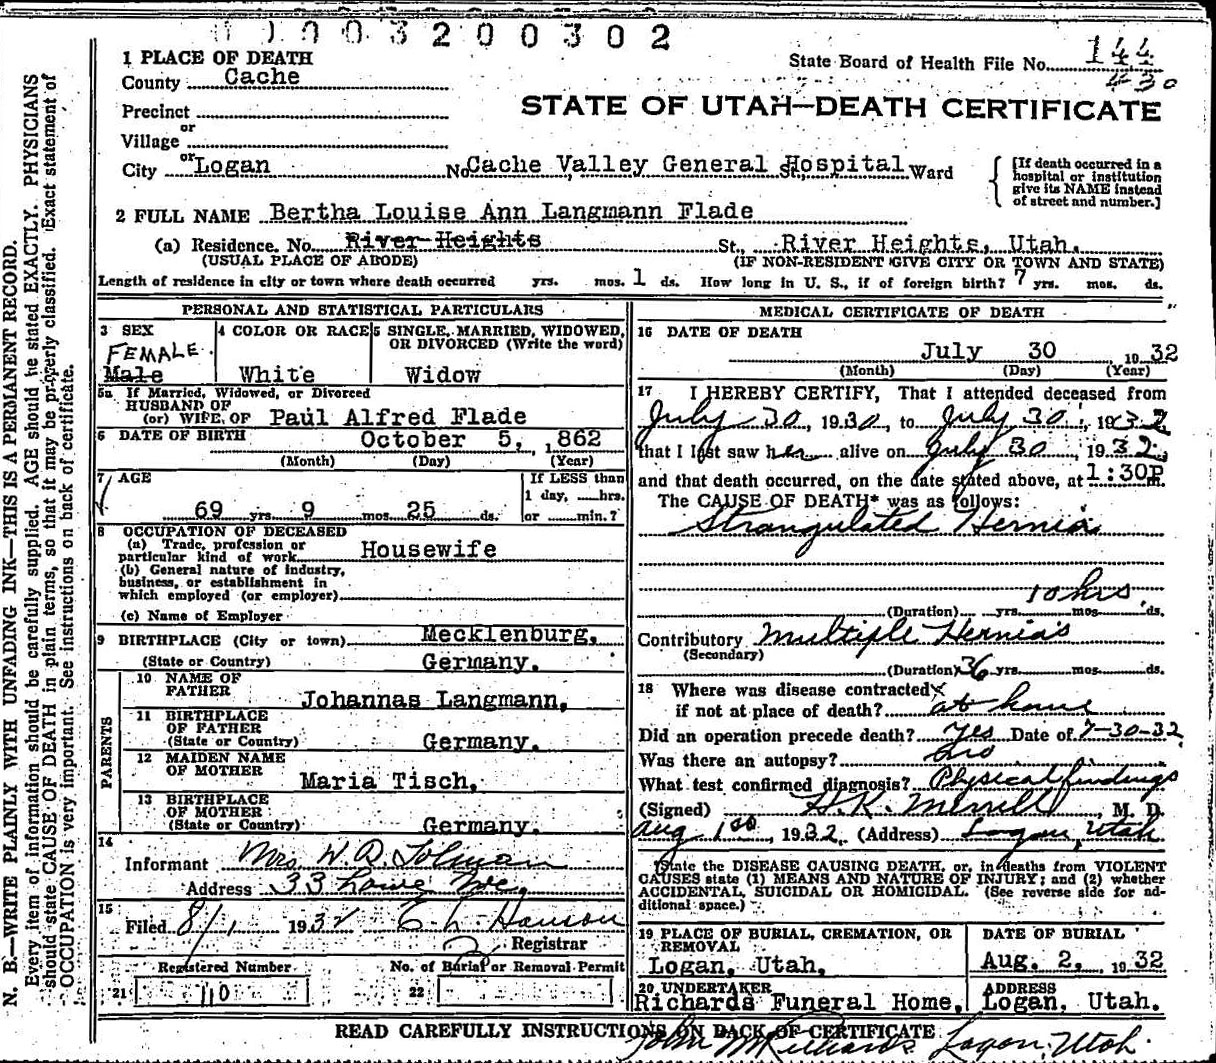 0 0 0 3 2 0 0 3 0 2
1 PLACE OF DEATH
County Cache
State Board of Health File No. 144
430
Precinct
STATE OF UTAH—DEATH CERTIFICATE
or
Village
or
City Logan No. Cache Valley General Hospital St., Ward
[If death occurred in a hospital or institution give its NAME instead of street and number.]
2 FULL NAME Bertha Louise Ann Langmann Flade
(a) Residence. No. River Heights St., River Heights, Utah.
(USUAL PLACE OF ABODE) (IF NON-RESIDENT GIVE CITY OR TOWN AND STATE)
Length of residence in city or town where death occurred yrs. mos. 1 ds. How long in U. S., if of foreign birth? 7 yrs. mos. ds.
PERSONAL AND STATISTICAL PARTICULARS
3 SEX
FEMALE.
Male
4 COLOR OR RACE
White
5 SINGLE, MARRIED, WIDOWED,
OR DIVORCED (Write the word)
Widow
5a If Married, Widowed, or Divorced
HUSBAND OF
(or) WIFE OF Paul Alfred Flade
6 DATE OF BIRTH October 5, 1862
(Month) (Day) (Year)
7 AGE
69 yrs. 9 mos. 25 ds.
If LESS than
1 day, hrs.
or min.?
8 OCCUPATION OF DECEASED
(a) Trade, profession or
particular kind of work Housewife
(b) General nature of industry,
business, or establishment in
which employed (or employer)
(c) Name of Employer
9 BIRTHPLACE (City or town) Mecklenburg,
(State or Country) Germany.
PARENTS
10 NAME OF
FATHER Johannas Langmann,
11 BIRTHPLACE
OF FATHER
(State or Country) Germany.
12 MAIDEN NAME
OF MOTHER Maria Tisch,
13 BIRTHPLACE
OF MOTHER
(State or Country) Germany.
14
Informant Mrs. W. D. Tolman
Address 33 Lowe Ave.
15
Filed 8/1 1932 E. L. Hanson
Registrar
Registered Number No. of Burial or Removal Permit
21 110 22
MEDICAL CERTIFICATE OF DEATH
16 DATE OF DEATH
July 30, 1932
(Month) (Day) (Year)
17 I HEREBY CERTIFY, That I attended deceased from
July 30, 1930, to July 30, 1932
that I last saw her alive on July 30, 1932,
and that death occurred, on the date stated above, at 1:30P m.
The CAUSE OF DEATH* was as follows:
Strangulated Hernia
10 hrs
(Duration) yrs. mos. ds.
Contributory Multiple Hernia's
(Secondary)
(Duration) 36 yrs. mos. ds.
18 Where was disease contracted
if not at place of death? at home
Did an operation precede death? yes Date of 7-30-32
Was there an autopsy? no
What test confirmed diagnosis? Physical findings
(Signed) H. K. Merrill, M. D.
Aug 1st, 1932. (Address) Logan, Utah
*State the DISEASE CAUSING DEATH, or, in deaths from VIOLENT
CAUSES state (1) MEANS AND NATURE OF INJURY; and (2) whether
ACCIDENTAL, SUICIDAL OR HOMICIDAL. (See reverse side for ad-
ditional space.)
19 PLACE OF BURIAL, CREMATION, OR
REMOVAL
Logan, Utah.
DATE OF BURIAL
Aug. 2, 1932
20 UNDERTAKER
Richards Funeral Home,
ADDRESS
Logan, Utah.
READ CAREFULLY INSTRUCTIONS ON BACK OF CERTIFICATE
John M Richards Logan, Utah.
N. B.—WRITE PLAINLY WITH UNFADING INK—THIS IS A PERMANENT RECORD.
Every item of information should be carefully supplied. AGE should be stated EXACTLY. PHYSICIANS
should state CAUSE OF DEATH in plain terms, so that it may be properly classified. Exact statement of
OCCUPATION is very important. See instructions on back of certificate.